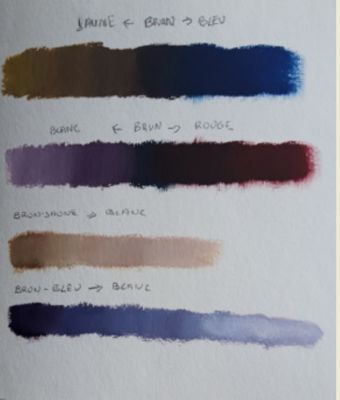 JAUNE ← BRUN → BLEU
BLANC ← BRUN → ROUGE
BRUN-JAUNE → BLANC
BRUN-BLEU → BLANC